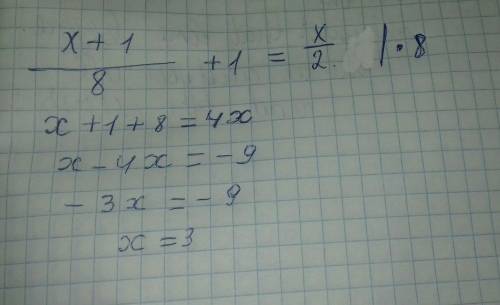 x + 1 / 8 + 1 = x / 2 | · 8
x + 1 + 8 = 4x
x - 4x = -9
- 3x = -9
x = 3